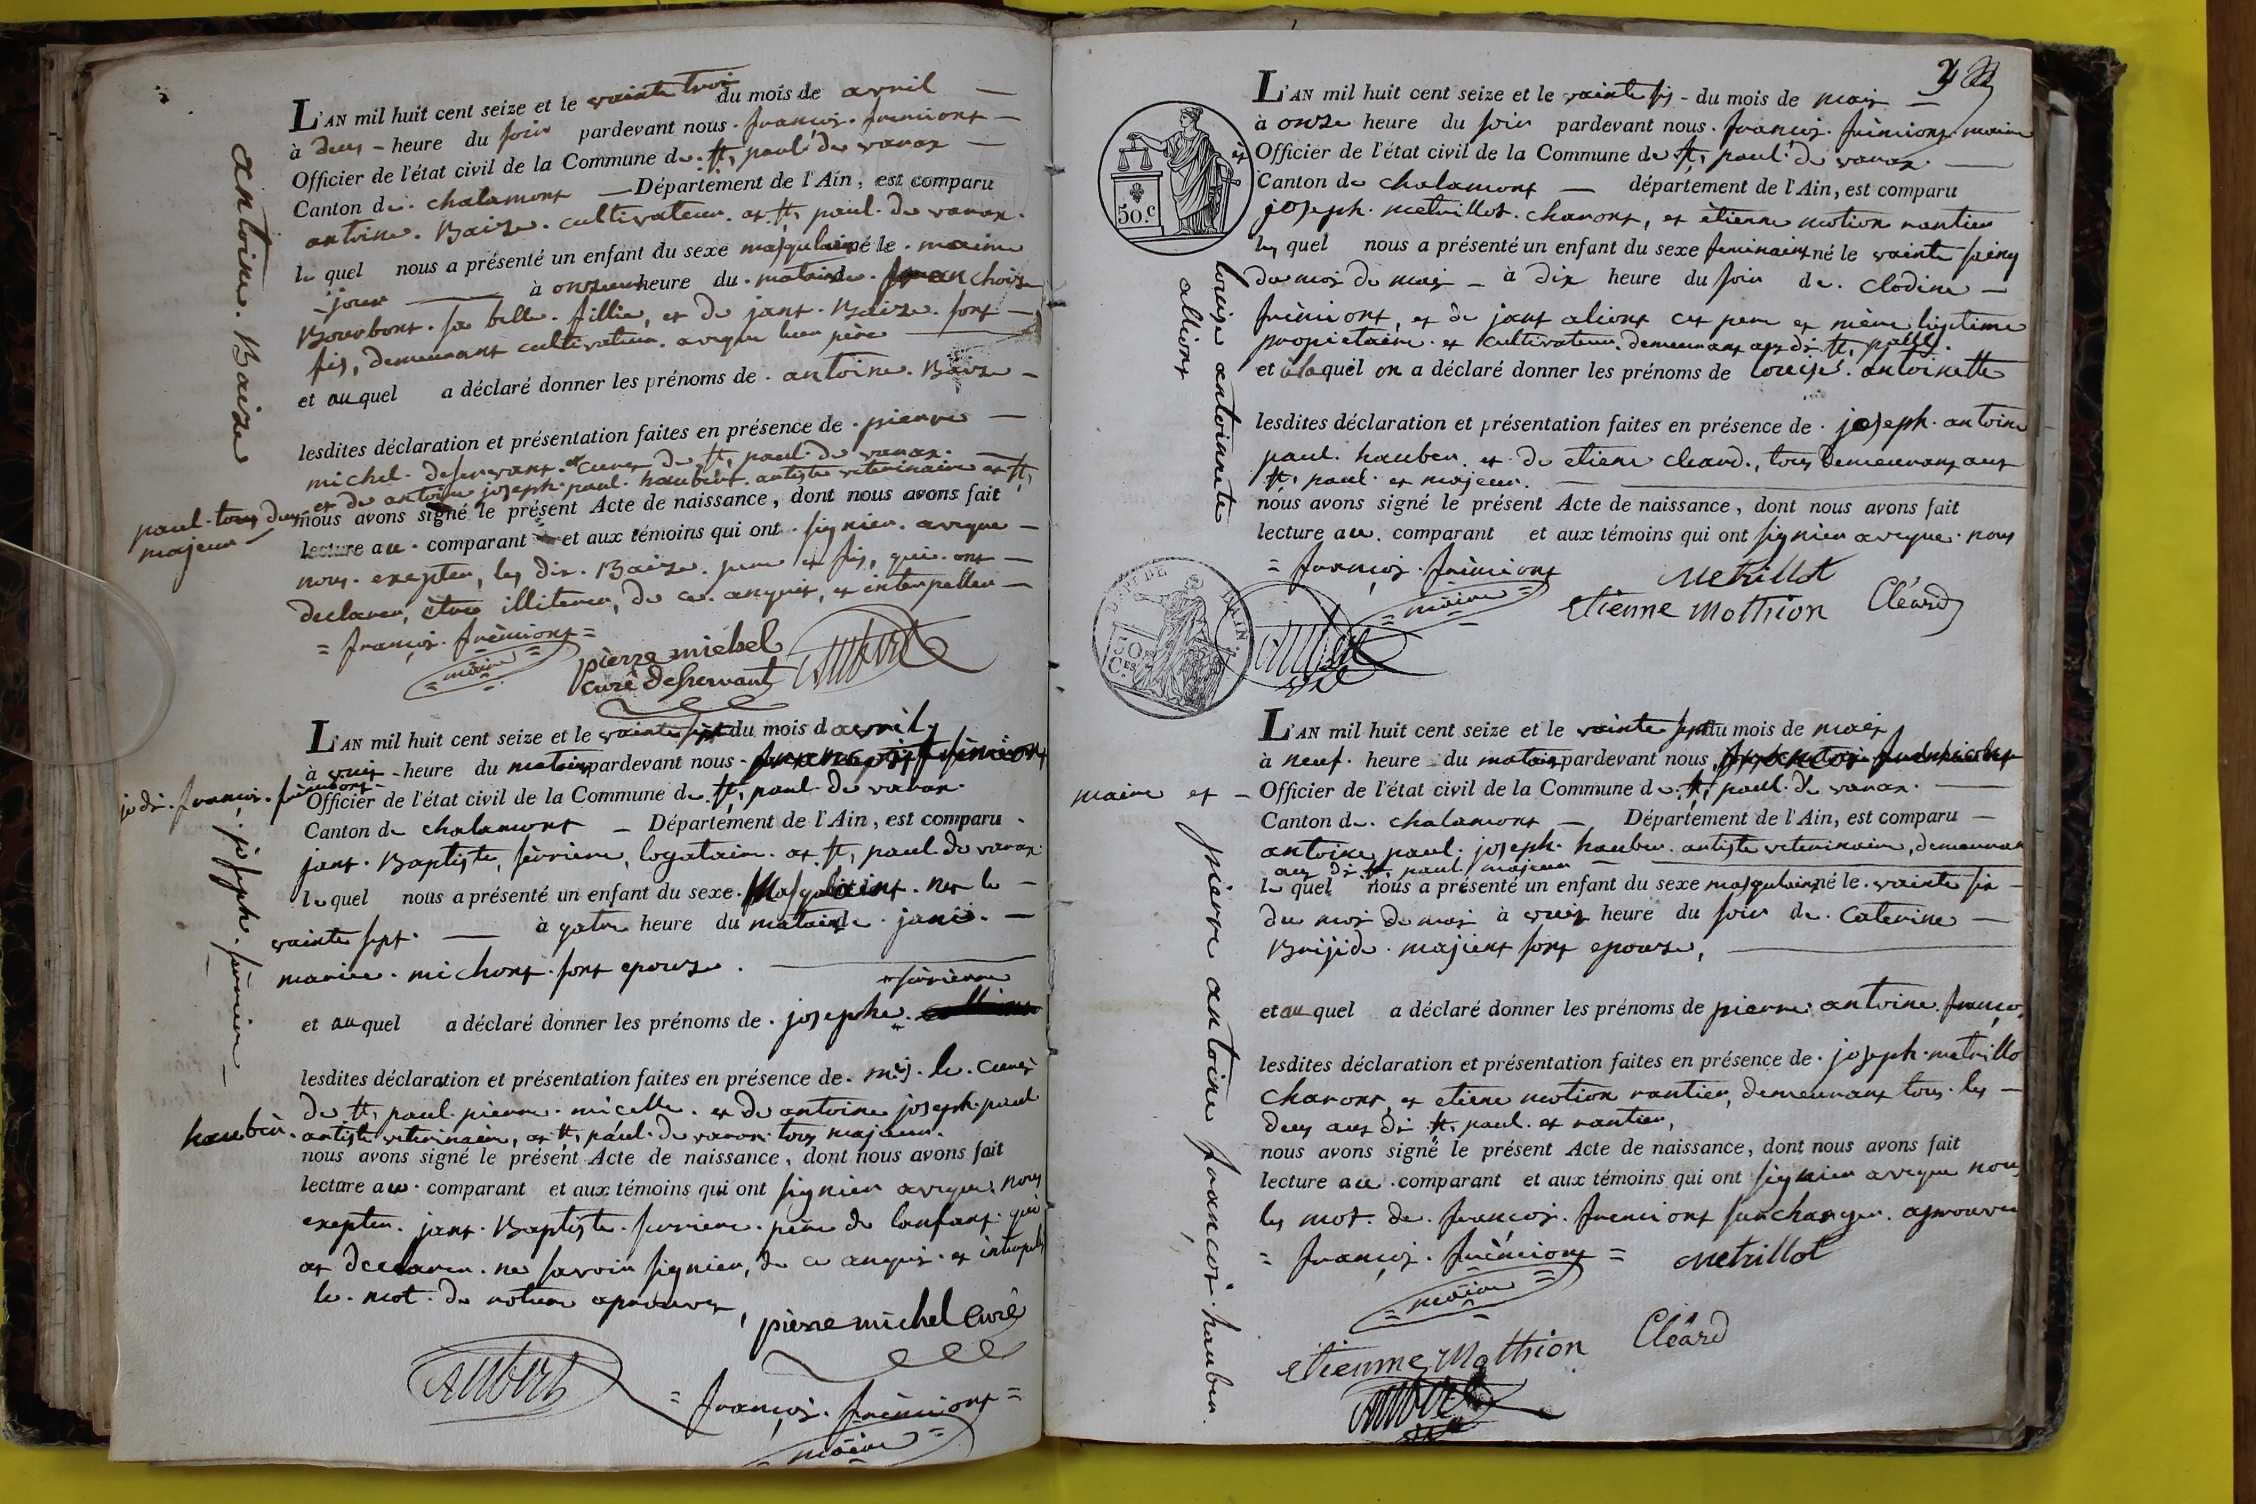 antoine. Baize
L'AN mil huit cent seize et le vainte troi du mois de avril
à deux heure du soir pardevant nous. françois. frèmiont
Officier de l'état civil de la Commune de. st, paul de varax
Canton de. chalamont Département de l'Ain, est comparu
antoine. Baize. cultivateur. at. st, paul. de varax.
le quel nous a présenté un enfant du sexe masqulain né le. maime
jour à onze heure du. matain de. choize
Bourbont. sa belle. fillie, et de jant. Baize. sont
fis, demeurant cultivateur. aveque leur père
et au quel a déclaré donner les prénoms de. antoine. Baize
lesdites déclaration et présentation faites en présence de. pierre
michel. deservant. et curer de st, paul. de varax.
et de antoine joseph. paul. haubért. artiste veterinaire at st,
paul. tous deux
majeur
nous avons signé le présent Acte de naissance, dont nous avons fait
lecture au. comparant et aux témoins qui ont. signier. aveque
nous. exepter, les dit. Baize. pere et fis, qui. ont
declarer, être illiterer, de ce. anquis, et interpeller
= françois. frèmiont =
= maire =
pierre michel
curé deservant
Aubert
L'AN mil huit cent seize et le vainte sept du mois d avril
à vuit heure du matain pardevant nous
je dit. françois. frèmiont
Officier de l'état civil de la Commune de. st, paul. de varax.
Canton de chalamont Département de l'Ain, est comparu
jant. Baptiste, févriere, logataire. at. st, paul. de varax.
le quel nous a présenté un enfant du sexe. Masqulaint. net le
joseph. févriere
vainte sept. à qatre heure du matain de. jane.
mariee. michont. sont epouze.
févriere
et au quel a déclaré donner les prénoms de. josephe.
lesdites déclaration et présentation faites en présence de. le. curer
de st, paul. pierre. micelle. et de antoine joseph. paul
haubèr. artiste veterinaire, at st, paul. de varax. tous majeur.
nous avons signé le présent Acte de naissance, dont nous avons fait
lecture au. comparant et aux témoins qui ont signier aveque nous
exepter. jant. Baptiste. fevriere. père de lanfant. qui
at declarer. ne savoir signier, de ce anquis. et
le. mot. de appruver,
pierre michel Curé
Aubert
= françois. frèmiont =
= maire =
L'AN mil huit cent seize et le vainte sis du mois de mais
à onze heure du soir pardevant nous. françois. frèmiont. maire
et
Officier de l'état civil de la Commune de st, paul. de varax.
50.c
Canton de chalamont département de l'Ain, est comparu
joseph. metrillot. charont, et ètienne motion rantier
les quel nous a présenté un enfant du sexe feminaint né le vainte sainq
du mois de mais à dix heure du soir de. clodine
frèmiont, et de jant aliont cet pere et mère légitime
propietaire. et cultivateur. demeurant aux dit. st, paul.
et à la quel on a déclaré donner les prénoms de loueise. antoinette
loueise antoinnete
alliont
lesdites déclaration et présentation faites en présence de. joseph. antoine
paul. hauber. et de etiene cleard., tous demeurant aux
st, paul. et majeur.
nous avons signé le présent Acte de naissance, dont nous avons fait
lecture au. comparant et aux témoins qui ont signier aveque. nous
= françois. frèmiont
= maire =
Metrillot
Etienne Mothion
Cléard
Aubert
50 Ces
L'AN mil huit cent seize et le vainte sept du mois de mais
à neuf. heure du matain pardevant nous.
maire et
Officier de l'état civil de la Commune de. st, paul. de varax.
Canton de. chalamont Département de l'Ain, est comparu
antoine paul. joseph. hauber. artiste veterinaire, demeurant
aux dit. st, paul, majeur
le quel nous a présenté un enfant du sexe masqulain né le. vainte six
du mois de mais à vuit heure du soir de. caterine
Brijide. majient sont epouze,
pierre antoine françois. hauber.
et au quel a déclaré donner les prénoms de pierre antoine. franços,
lesdites déclaration et présentation faites en présence de. joseph. metrillo
charont, et etiene motion rantier, demeurant tous. les
deux aux dit st, paul. et rantier,
nous avons signé le présent Acte de naissance, dont nous avons fait
lecture au. comparant et aux témoins qui ont signier aveque nous
les mot. de. françois. fremiont surcharger. aprouver
= françois. frèmiont =
= maire =
Metrillot
Etienne Mothion
Cléard
Aubert